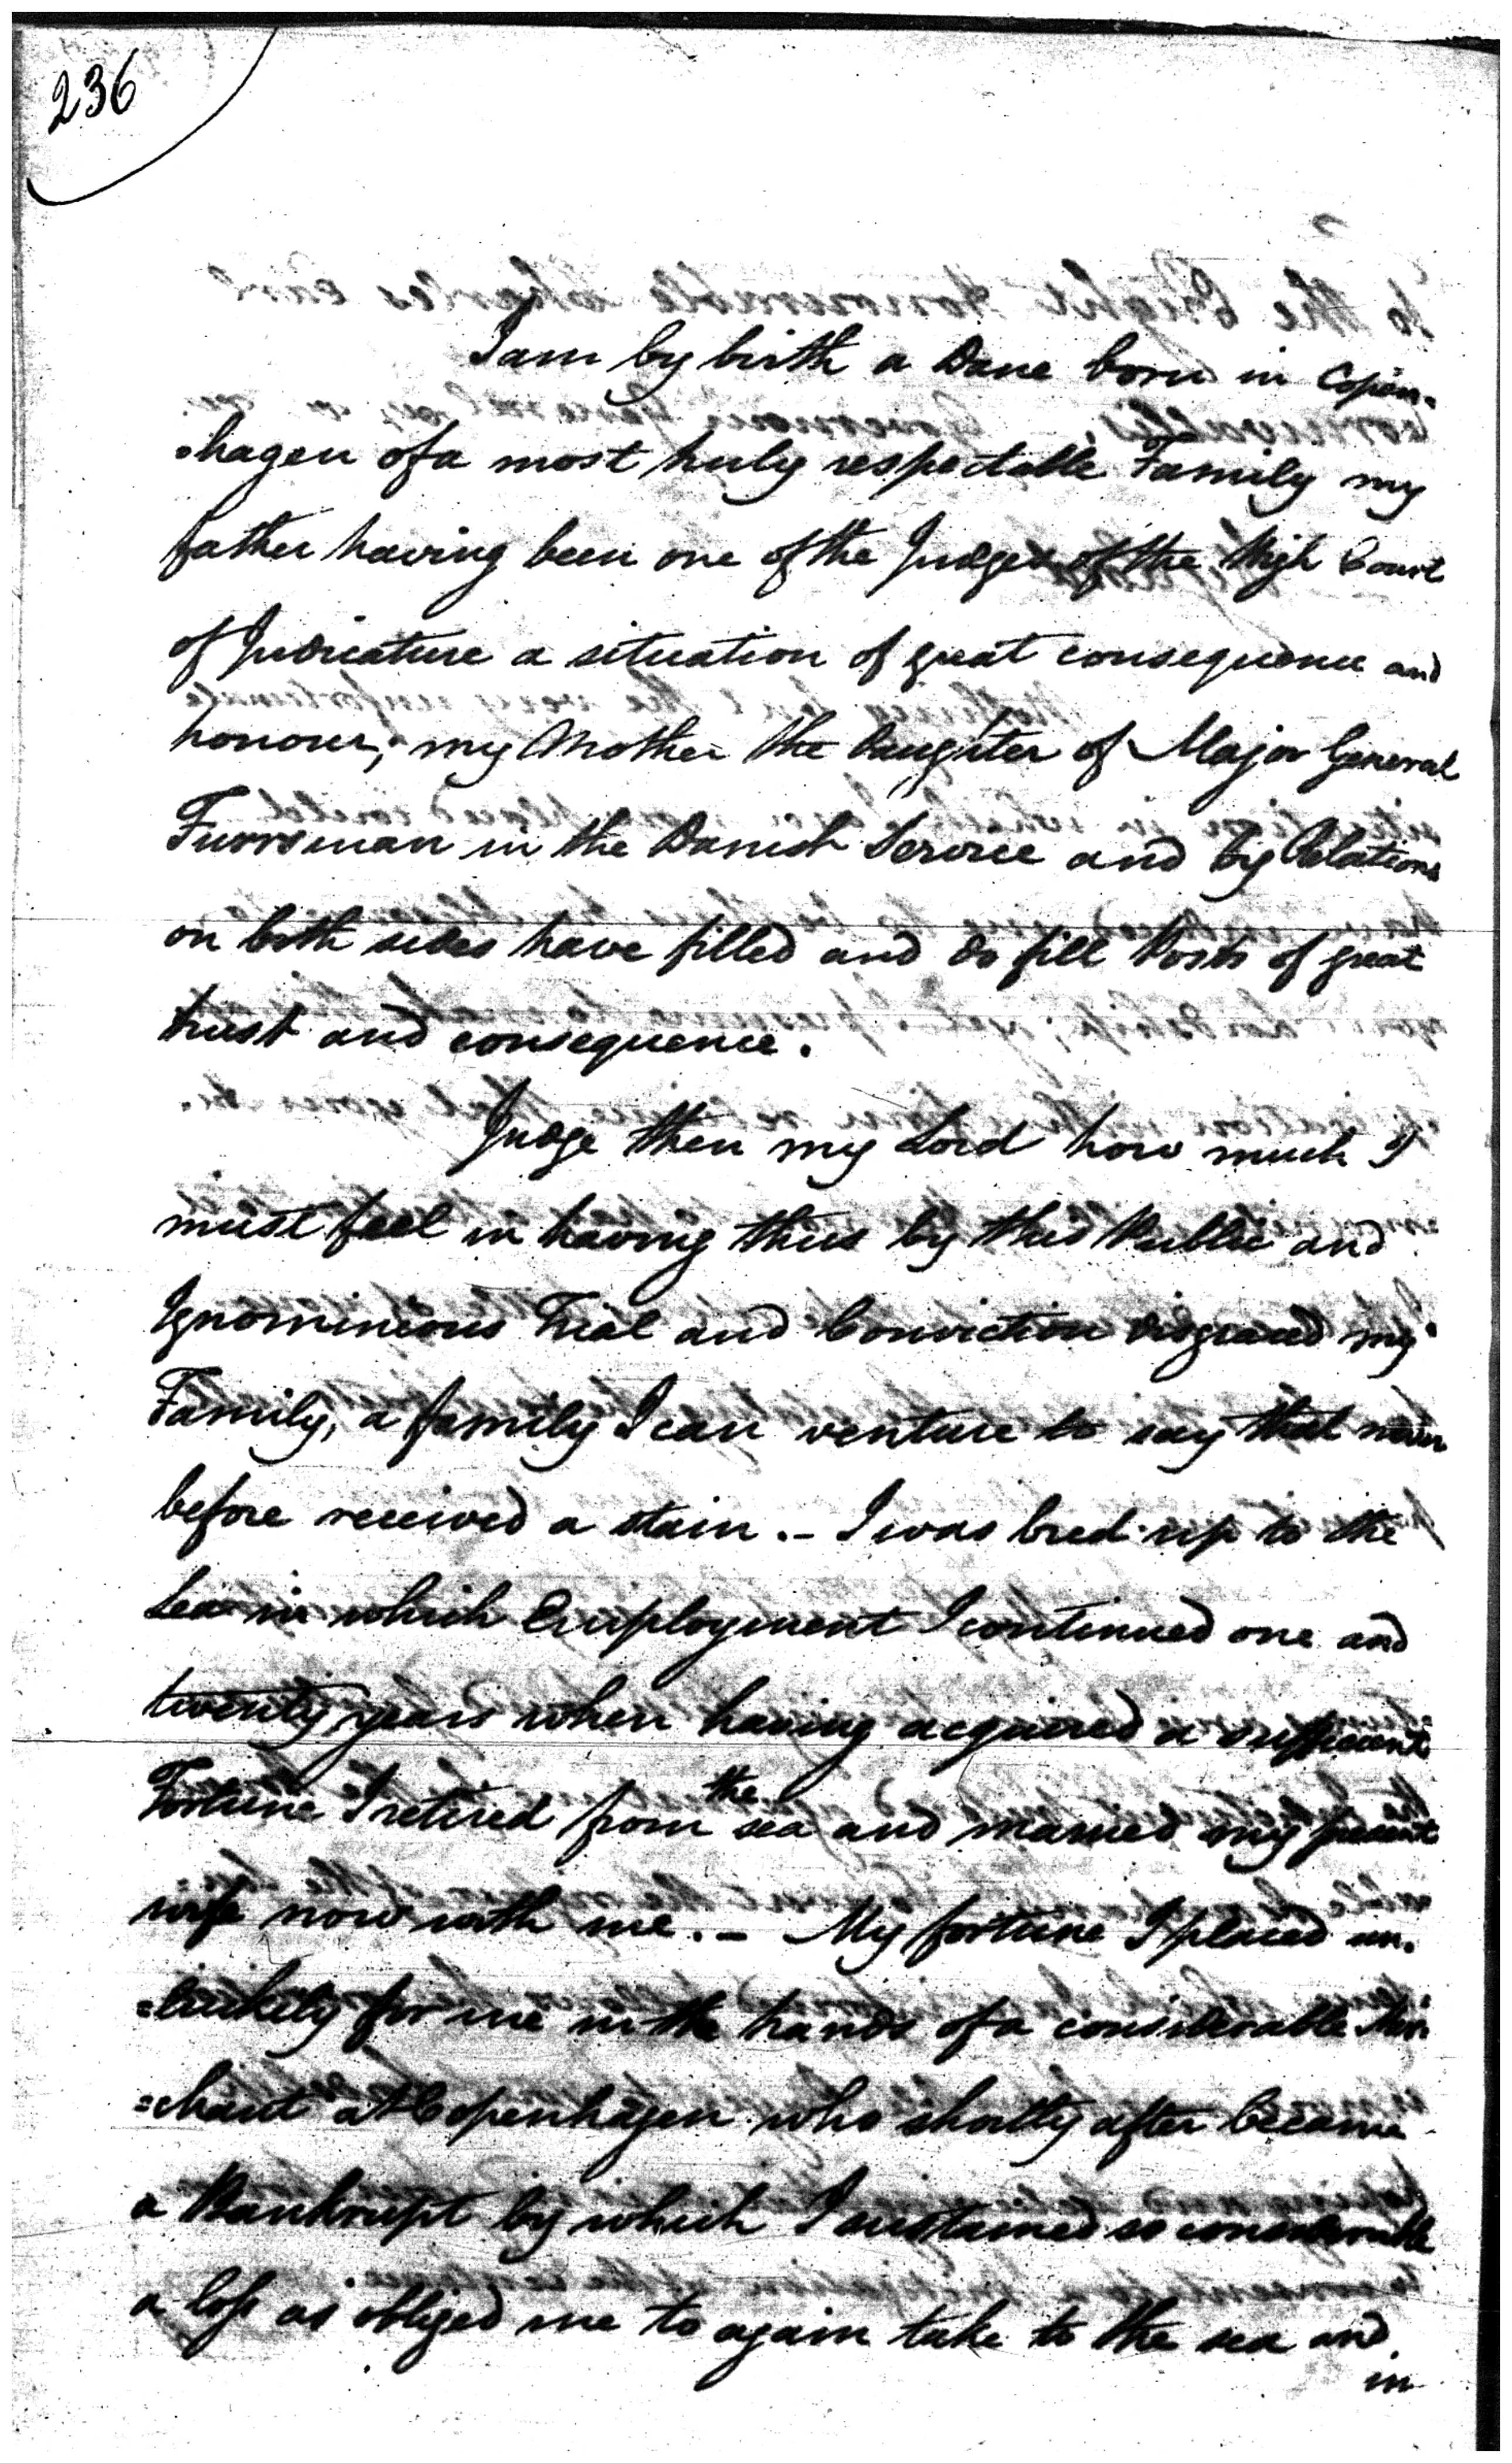 236
I am by birth a Dane born in Copen-
-hagen of a most truly respectable Family my
father having been one of the Judges of the High Court
of Judicature a situation of great consequence and
honour; my Mother the Daughter of Major General
in the Danish Service and by Relations
on both sides have filled and do fill Posts of great
trust and consequence.
Judge then my Lord how much I
must feel in having thus by this Public and
Ignominious Trial and Conviction disgraced my
Family, a family I can venture to say that never
before received a stain. – I was bred up to the
Sea in which Employment I continued one and
twenty years when having acquired a sufficient
Fortune I retired from the sea and married my present
wife now with me. – My fortune I placed un-
=luckily for me in the hands of a considerable Mer
=chant at Copenhagen who shortly after became
a Bankrupt by which I sustained so considerable
a loss as obliged me to again take to the sea and
in